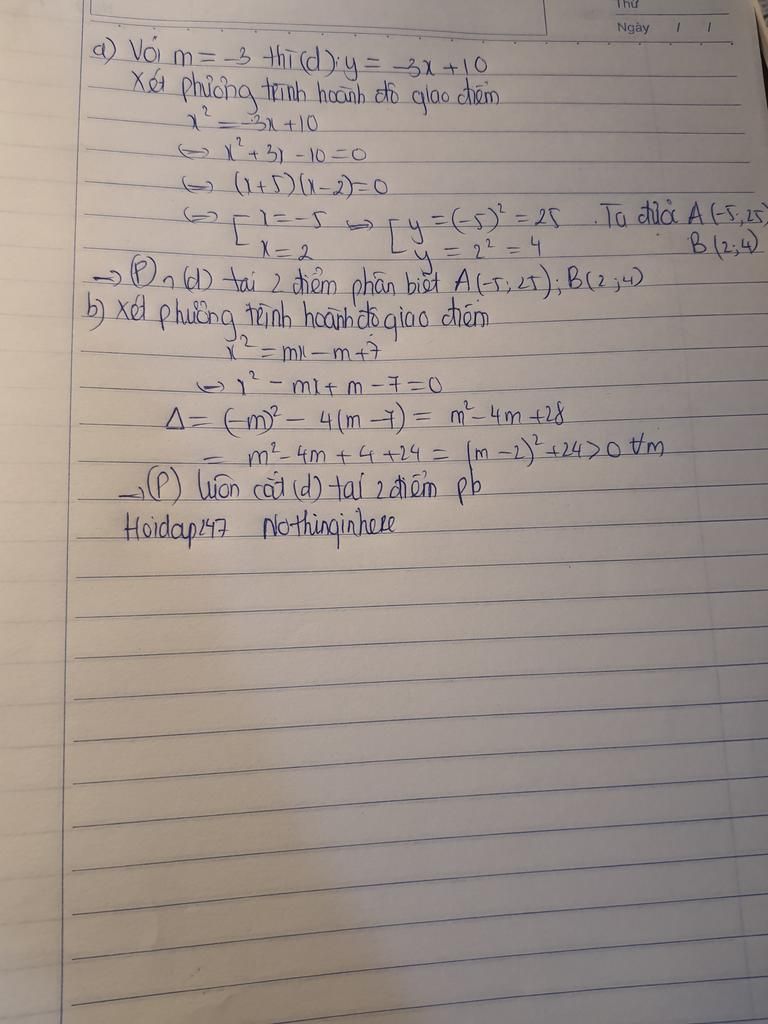 Thứ
Ngày / /
a) Với m = -3 thì (d): y = -3x + 10
Xét phương trình hoành độ giao điểm
x² = -3x + 10
⇔ x² + 3x - 10 = 0
⇔ (x + 5)(x - 2) = 0
⇔ [ x = -5 ⇔ [ y = (-5)² = 25 . Ta được A(-5; 25)
x = 2 y = 2² = 4 B(2; 4)
→ (P) ∩ (d) tại 2 điểm phân biệt A(-5; 25); B(2; 4)
b) Xét phương trình hoành độ giao điểm
x² = mx - m + 7
⇔ x² - mx + m - 7 = 0
Δ = (-m)² - 4(m - 7) = m² - 4m + 28
= m² - 4m + 4 + 24 = (m - 2)² + 24 > 0 ∀m
→ (P) luôn cắt (d) tại 2 điểm pb
Hoidap247 Nothinginhere